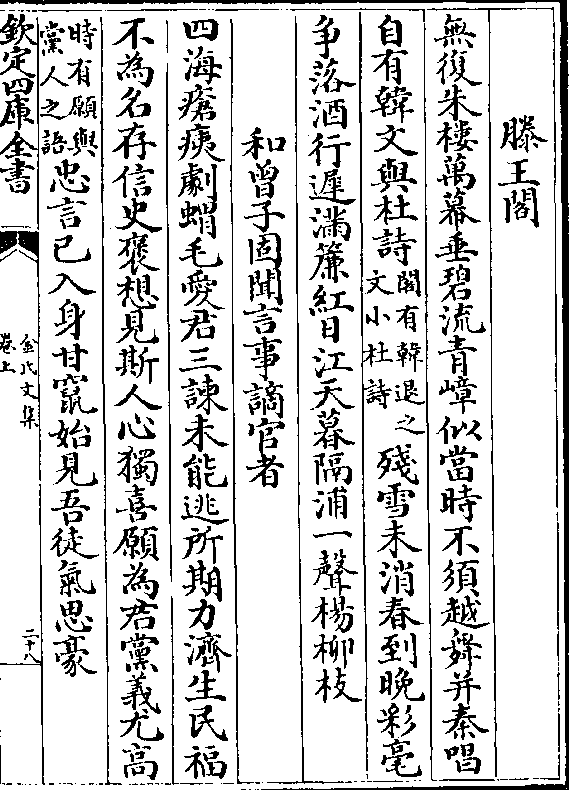 滕王閣
無復朱樓萬幕垂碧流青嶂似當時不須越舞并秦唱
自有韓文與杜詩閣有韓退之文小杜詩殘雪未消春到晚彩毫
争落酒行遲滿簾紅日江天暮隔浦一聲楊柳枝
和曾子固聞言事謫官者
四海瘡痍劇蝟毛愛君三諫未能逃所期力濟生民福
不為名存信史褒想見斯人心獨喜願為君黨義尤高
時有願與黨人之語忠言已入身甘竄始見吾徒氣思豪
欽定四庫全書
金氏文集
卷上
二十八